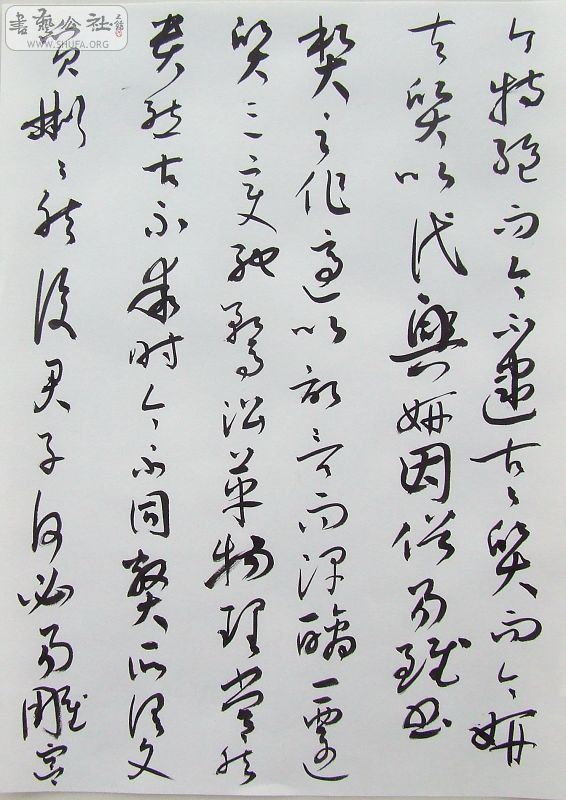 書藝公社
WWW.SHUFA.ORG
今特絕而今不逮古々質而今妍
夫質以代興妍因俗易雖書
契之作適以記言而淳醨一遷
質三變馳騖沿革物理常然
貴能古不乖時今不同弊所謂文
質彬々然後君子何必易雕宮